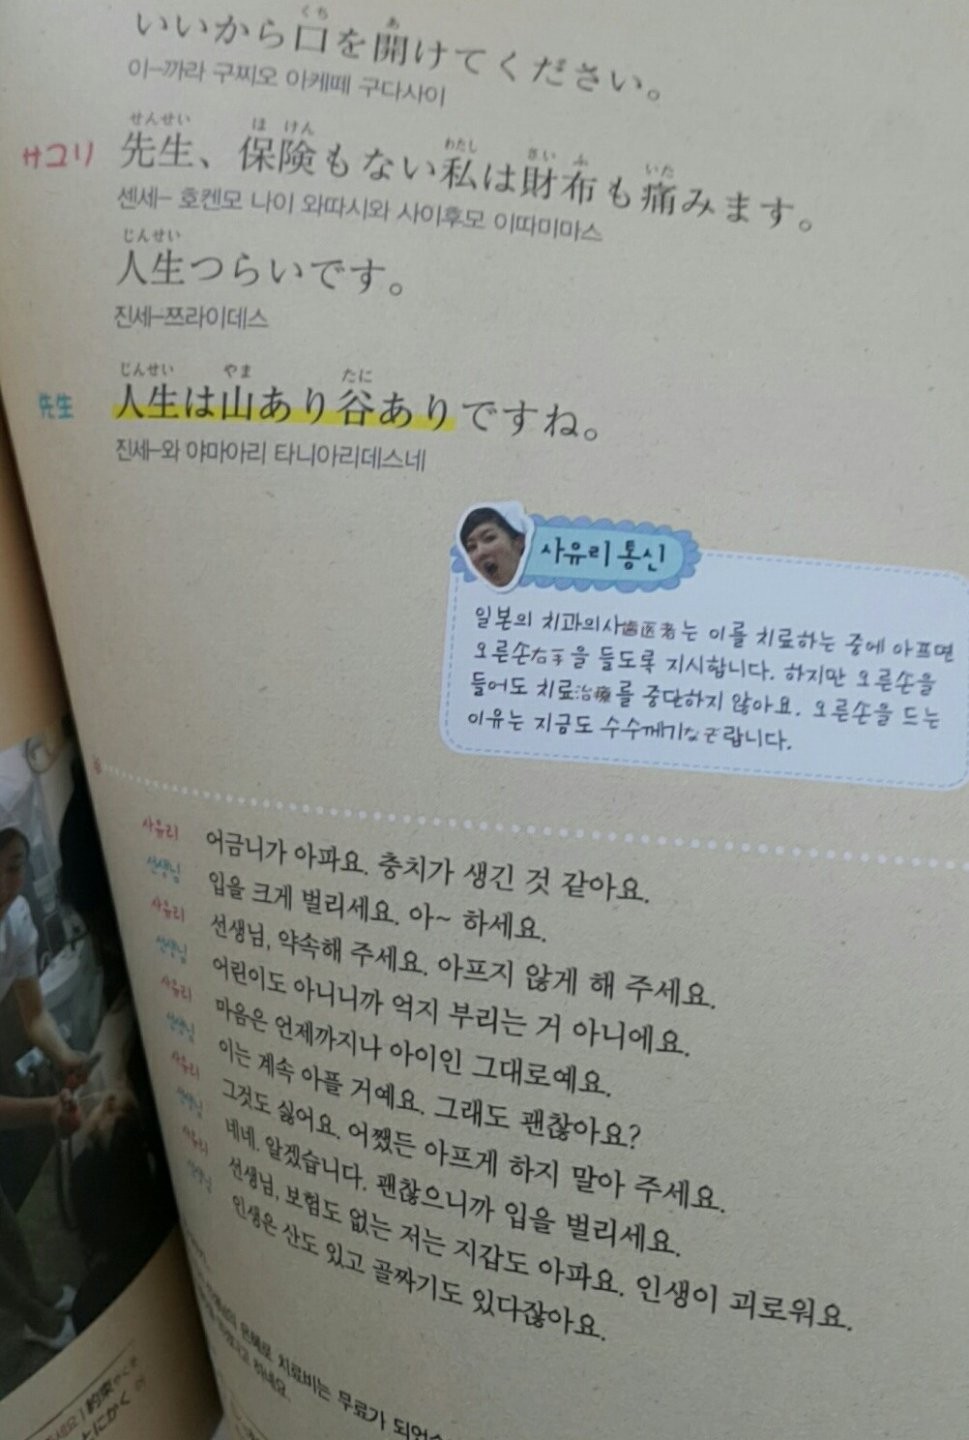 いいから口を開けてください。
くち あ
이-까라 구찌오 아케떼 구다사이
サユリ
せんせい ほ けん わたし さい ふ いた
先生、保険もない私は財布も痛みます。
센세- 호켄모 나이 와따시와 사이후모 이따미마스
じんせい
人生つらいです。
진세-쯔라이데스
じんせい やま たに
先生 人生は山あり谷ありですね。
진세-와 야마아리 타니아리데스네
사유리 통신
일본의 치과의사歯医者는 이를 치료하는 중에 아프면
오른손右手을 들도록 지시합니다. 하지만 오른손을
들어도 치료治療를 중단하지 않아요. 오른손을 드는
이유는 지금도 수수께기なぞ랍니다.
사유리 어금니가 아파요. 충치가 생긴 것 같아요.
선생님 입을 크게 벌리세요. 아~ 하세요.
사유리 선생님, 약속해 주세요. 아프지 않게 해 주세요.
선생님 어린이도 아니니까 억지 부리는 거 아니에요.
사유리 마음은 언제까지나 아이인 그대로예요.
선생님 이는 계속 아플 거예요. 그래도 괜찮아요?
사유리 그것도 싫어요. 어쨌든 아프게 하지 말아 주세요.
선생님 네네. 알겠습니다. 괜찮으니까 입을 벌리세요.
사유리 선생님, 보험도 없는 저는 지갑도 아파요. 인생이 괴로워요.
선생님 인생은 산도 있고 골짜기도 있다잖아요.
은혜로 치료비는 무료가 되었
하네요.